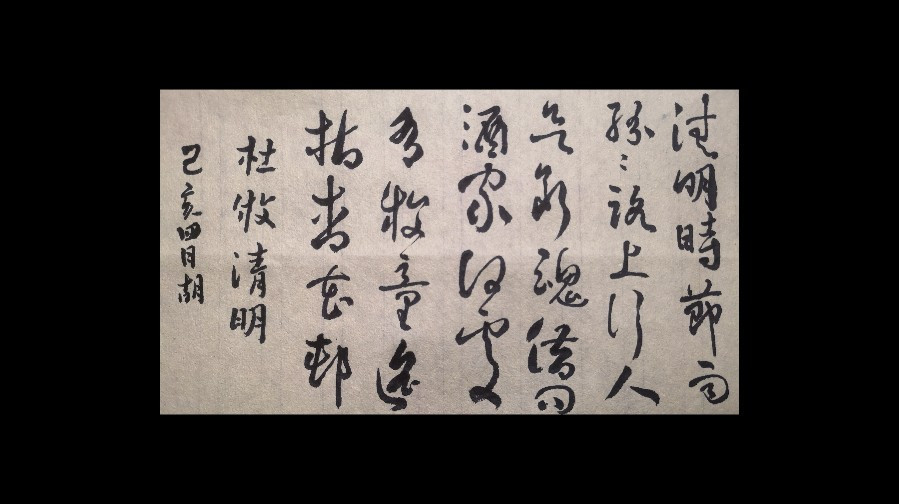 清明時節雨
紛〻路上行人
欲断魂借问
酒家何處
有牧童遙
指杏花邨
杜牧清明
己亥四月胡